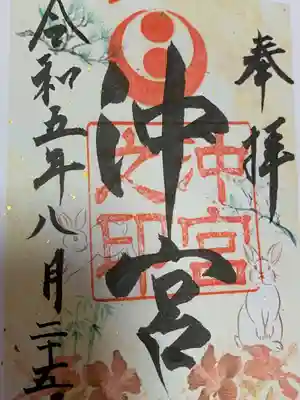 奉拝
沖宮
沖宮之印
令和五年八月二十五